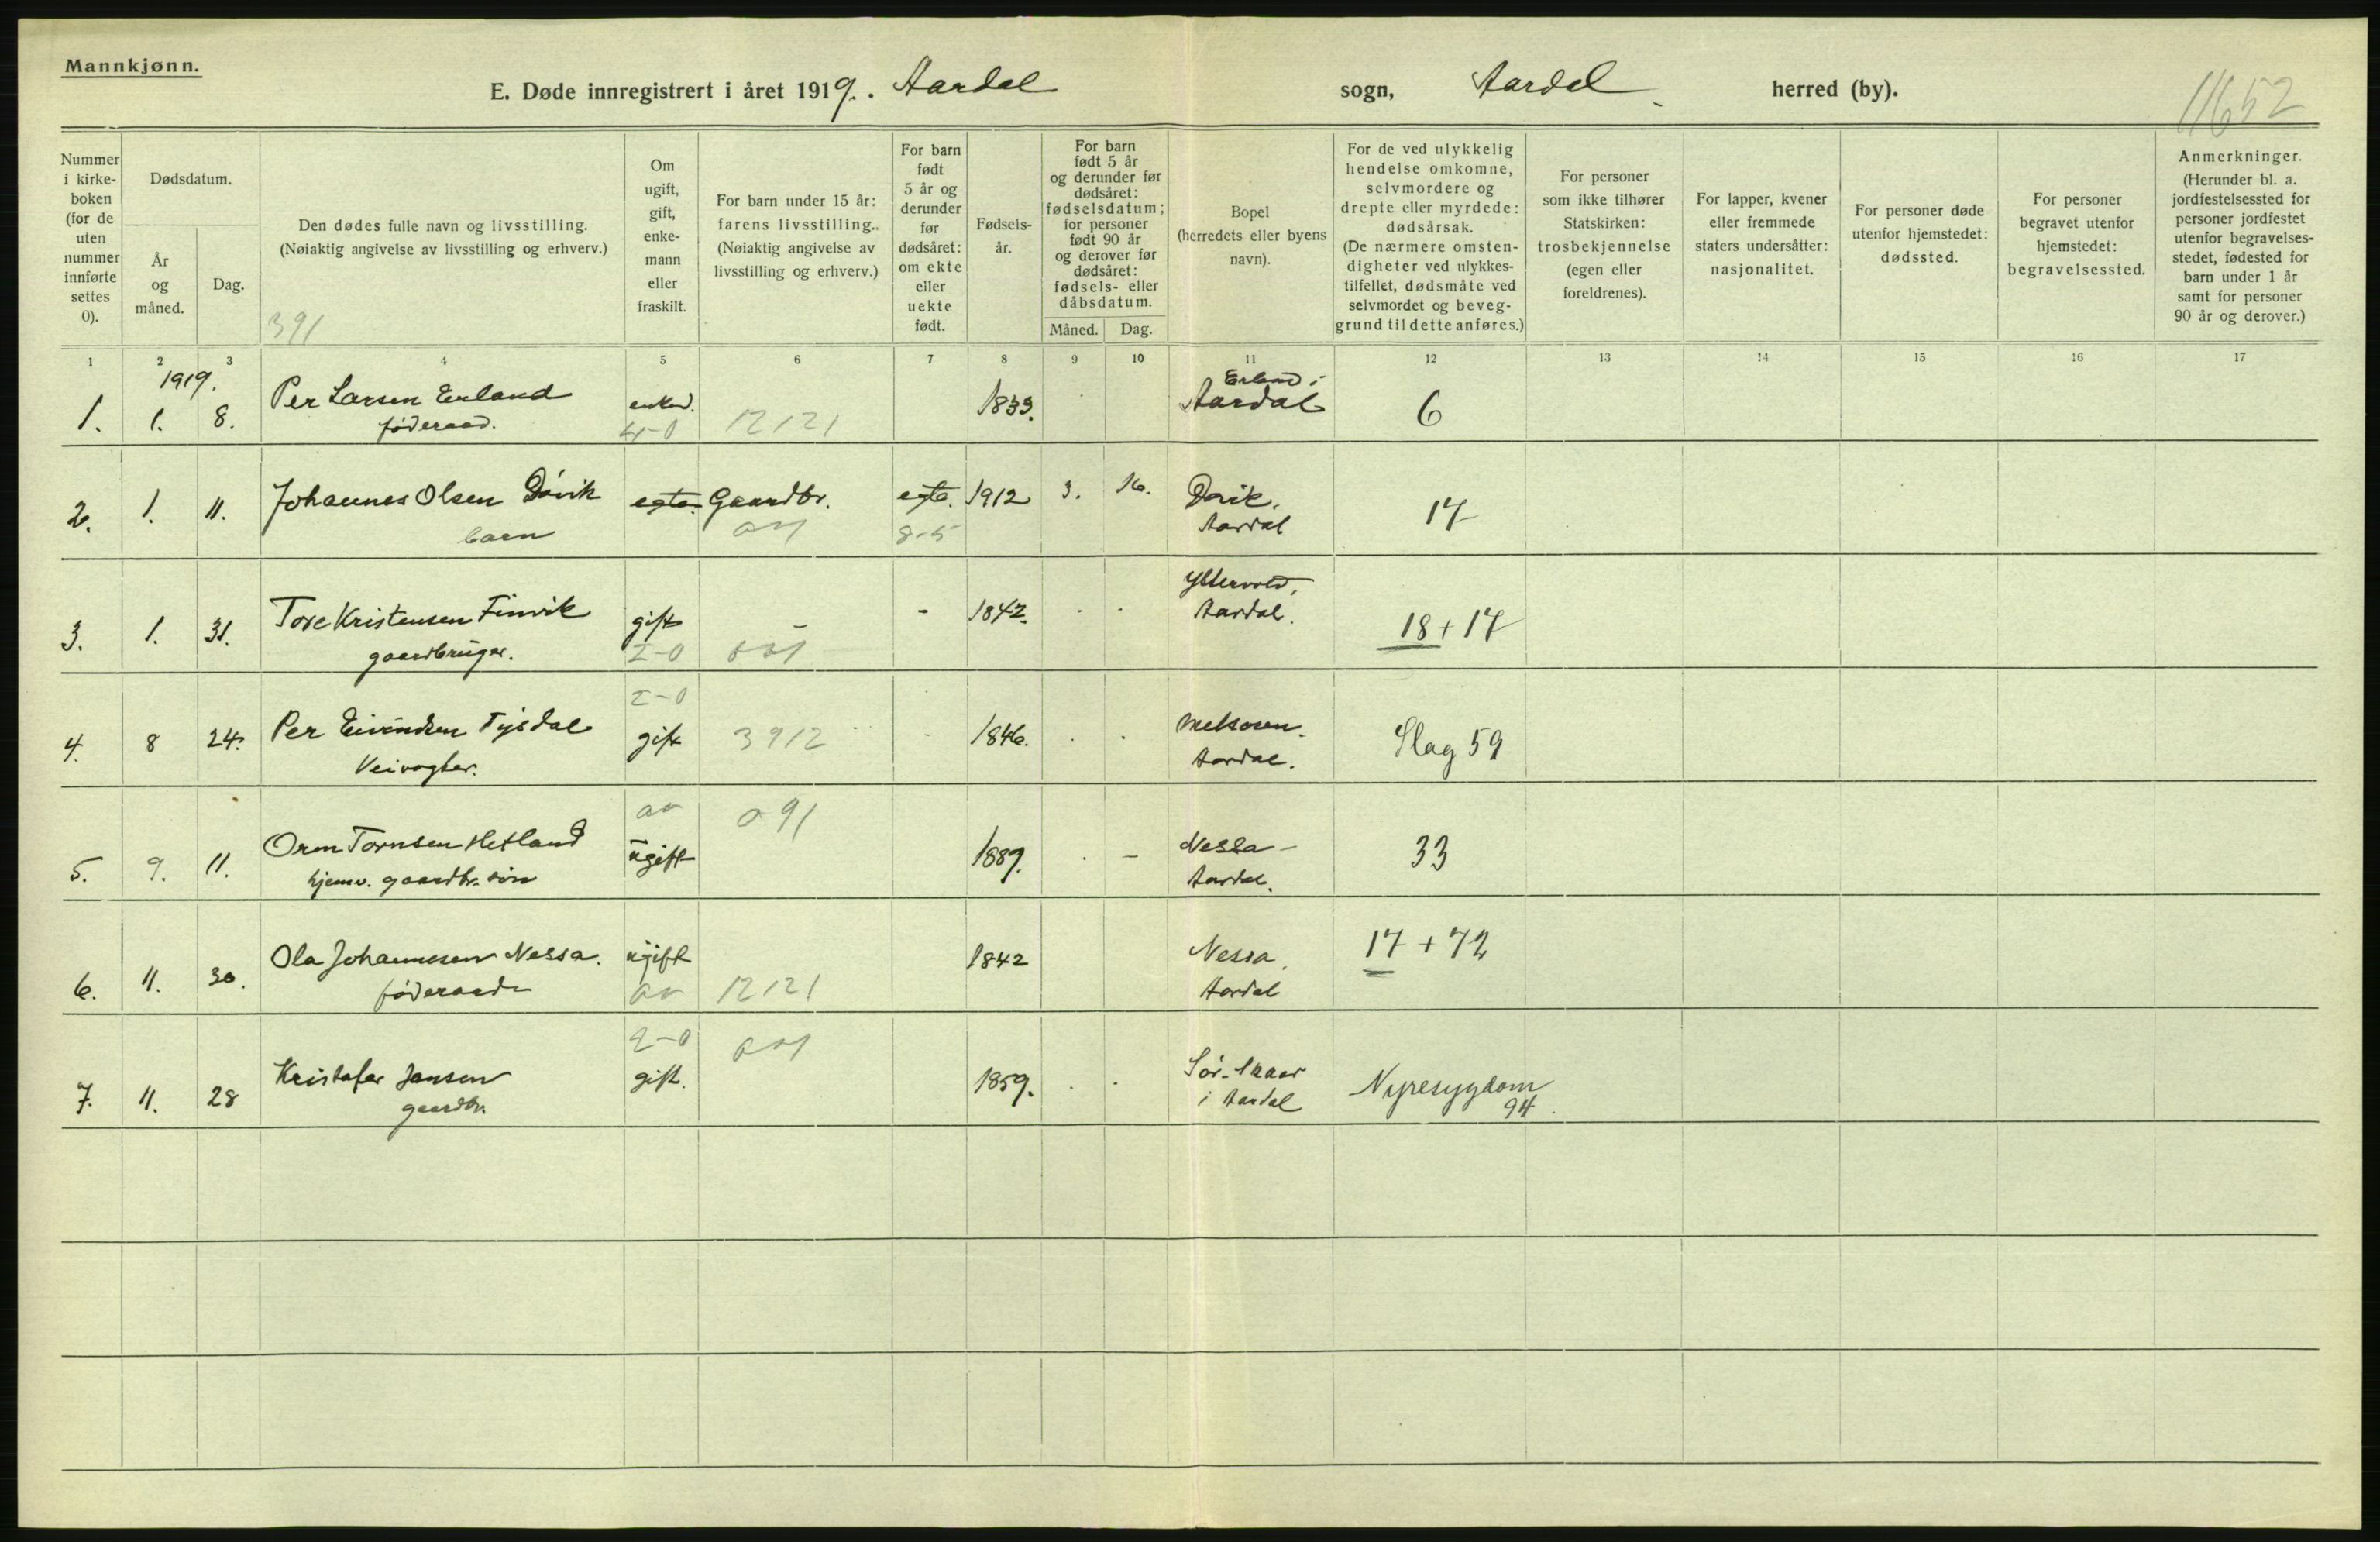 Mannkjønn.
E. Døde innregistrert i året 1919. Aardal sogn, Aardal herred (by).
11652
Nummer i kirke-boken (for de uten nummer innførte settes 0).
Dødsdatum.
År og måned.
Dag.
Den dødes fulle navn og livsstilling.
(Nøiaktig angivelse av livsstilling og erhverv.)
391
Om ugift, gift, enke-mann eller fraskilt.
For barn under 15 år: farens livsstilling..
(Nøiaktig angivelse av livsstilling og erhverv.)
For barn født 5 år og derunder før dødsåret: om ekte eller uekte født.
Fødsels-år.
For barn født 5 år og derunder før dødsåret: fødselsdatum; for personer født 90 år og derover før dødsåret: fødsels- eller dåbsdatum.
Måned.
Dag.
Bopel (herredets eller byens navn).
For de ved ulykkelig hendelse omkomne, selvmordere og drepte eller myrdede: dødsårsak.
(De nærmere omsten-digheter ved ulykkes-tilfellet, dødsmåte ved selvmordet og beveg-grund til dette anføres.)
For personer som ikke tilhører Statskirken: trosbekjennelse (egen eller foreldrenes).
For lapper, kvener eller fremmede staters undersåtter: nasjonalitet.
For personer døde utenfor hjemstedet: dødssted.
For personer begravet utenfor hjemstedet: begravelsessted.
Anmerkninger.
(Herunder bl. a. jordfestelsessted for personer jordfestet utenfor begravelses-stedet, fødested for barn under 1 år samt for personer 90 år og derover.)
1 2 3 4 5 6 7 8 9 10 11 12 13 14 15 16 17
1919.
1. 1. 8. Per Larsen Erland enkem. 1839. Erland i Aardal 6
føderaad. 4-0 12121
2. 1. 11. Johannes Olsen Dövik egte. Gaardbr. egte. 1912 3. 16. Dövik, Aardal 17
barn 8-5
3. 1. 31. Tore Kristensen Finvik gift - - 1842. Aardal. 18+17
gaardbruger. 2-0
2-0
4. 8 24. Per Eivindsen Tysdal gift 3912 1846. Aardal. Slag 59
Veivogter.
091
5. 9. 11. Orm Tornsen Hetland ugift 1889. - Nessa - Aardal. 33
hjemv. gaardbr. søn
6. 11. 30. Ola Johannesen Nessa. ugift 1842 Nessa, Aardal 17+72
føderaad 12121
2-0
7. 11. 28 Kristofer Jansen gift. 1859. Sör-Skaar i Aardal Nyresygdom
gaardbr. 94.